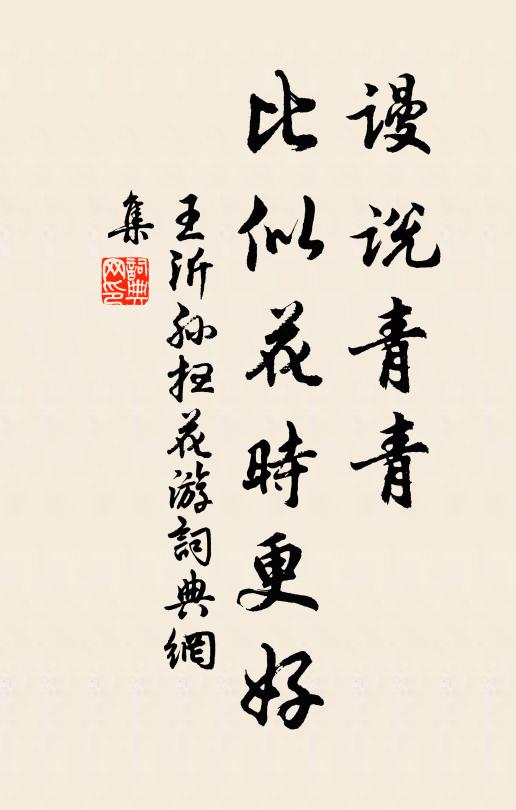 谩说青青
比似花時更好
王沂孙扫花游詞典網
集
詞典网印